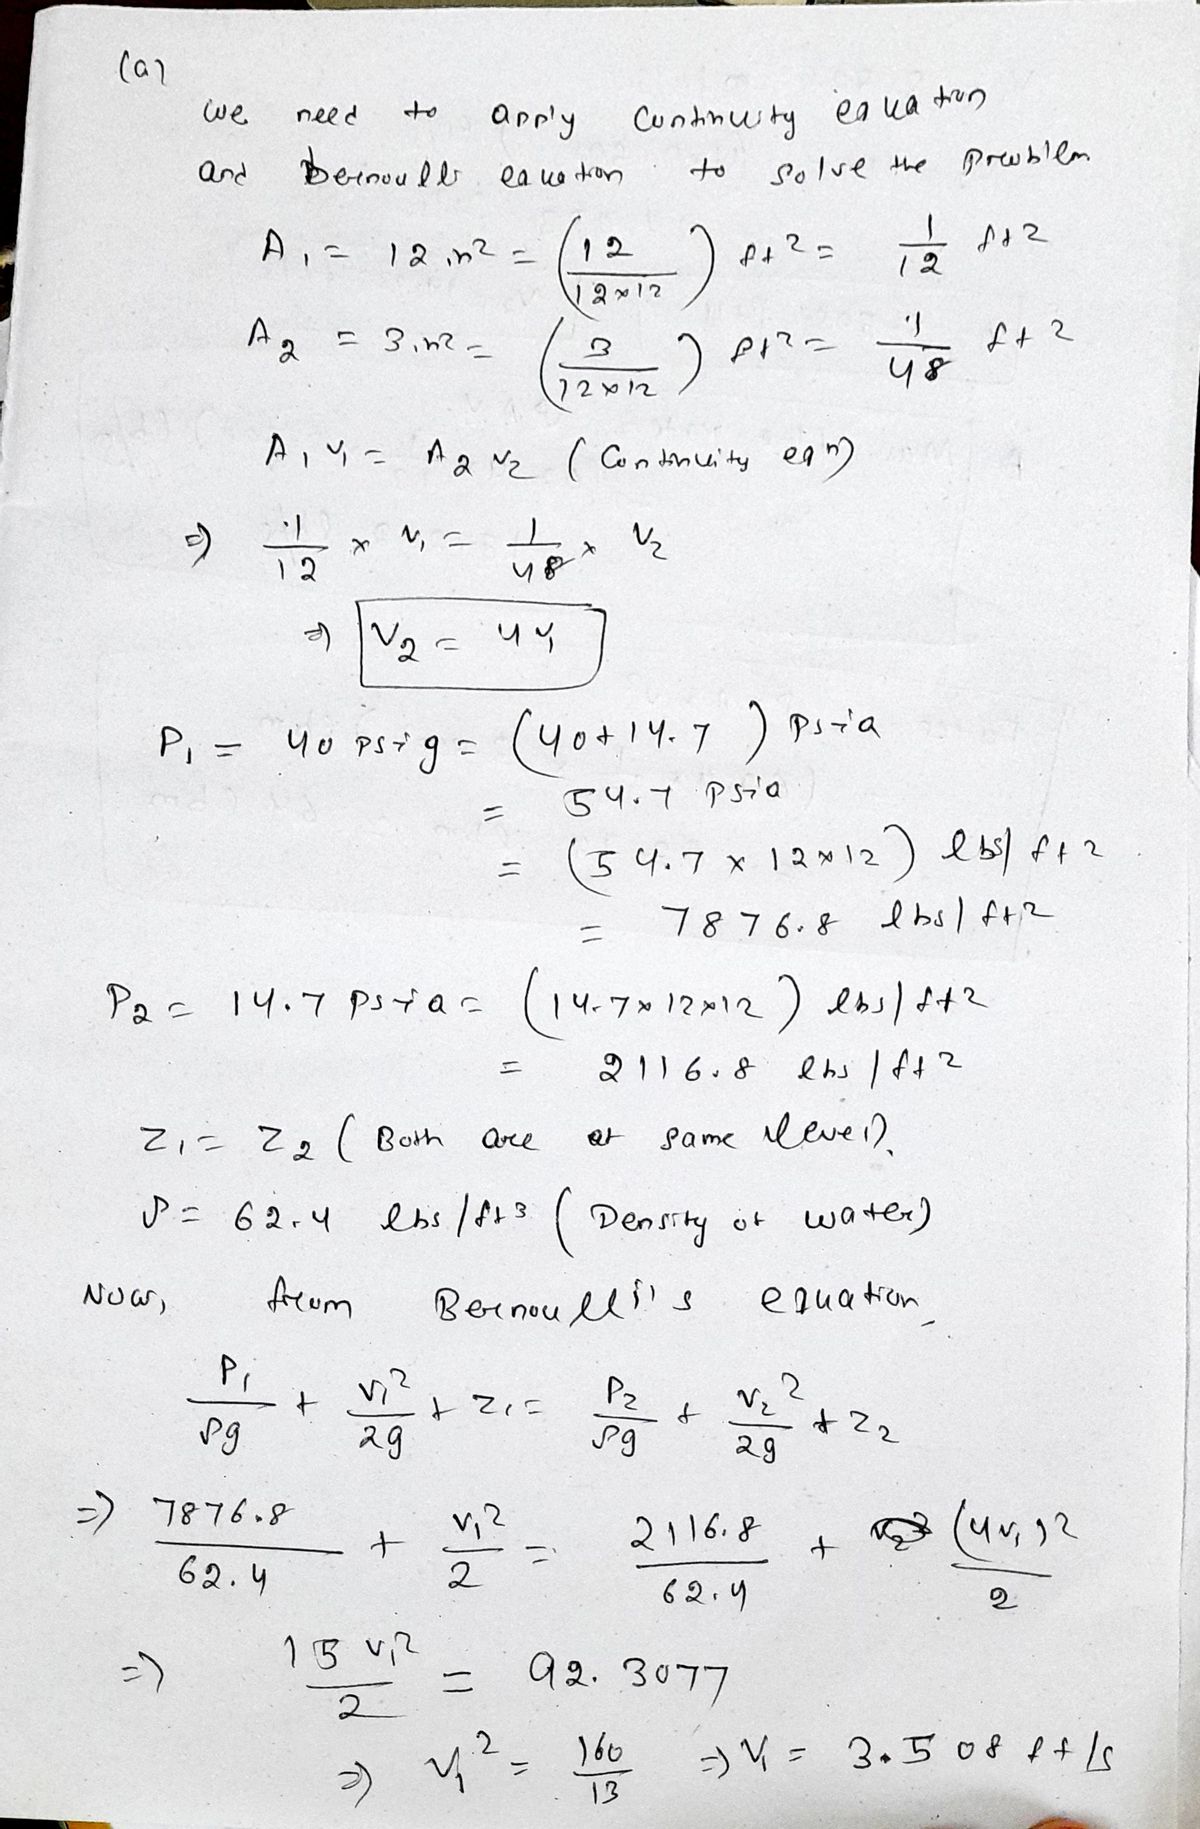 (a)
we need to apply continuity equation
and bernoulli equation to solve the problem
A₁ = 12 in² = (12/(12×12)) ft² = 1/12 ft²
A₂ = 3 in² = (3/(12×12)) ft² = 1/48 ft²
A₁ v₁ = A₂ v₂ (Continuity eqn)
⇒ 1/12 × v₁ = 1/48 × v₂
⇒ v₂ = 4v₁
P₁ = 40 psig = (40+14.7) psia
= 54.7 psia
= (54.7 × 12×12) lbs/ft²
= 7876.8 lbs/ft²
P₂ = 14.7 psia = (14.7×12×12) lbs/ft²
= 2116.8 lbs/ft²
z₁ = z₂ (Both are at same level).
ρ = 62.4 lbs/ft³ (Density of water)
Now, from Bernoulli's equation,
P₁/ρg + v₁²/2g + z₁ = P₂/ρg + v₂²/2g + z₂
⇒ 7876.8/62.4 + v₁²/2 = 2116.8/62.4 + (4v₁)²/2
⇒ 15 v₁²/2 = 92.3077
⇒ v₁² = 160/13 ⇒ v₁ = 3.508 ft/s